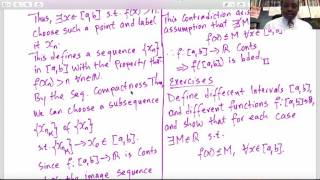 Thus, ∃ x ∈ [a,b] s.t. f(x) >
Choose such a point and label
it xₙ.
This defines a sequence {xₙ}
in [a,b] with the Property that
f(xₙ) > n ∀ n∈ℕ.
By the Seq. Compactness Thm
We can choose a subsequence
{xₙₖ} of {xₙ}
s.t {xₙₖ} → x₀ ∈ [a,b]
Since f:[a,b]→ℝ is Conts
the image sequence
This Contradiction
assumption that ∄
M ∀ x∈[a,b]
f: [a,b]→ℝ Conts
⇒ f([a,b]) is bded
Exercises
Define different Intervals [a,b],
and different functions f:[a,b]→ℝ,
and show that for each case
∃ M ∈ ℝ s.t.
f(x) ≤ M, ∀ x∈[a,b].